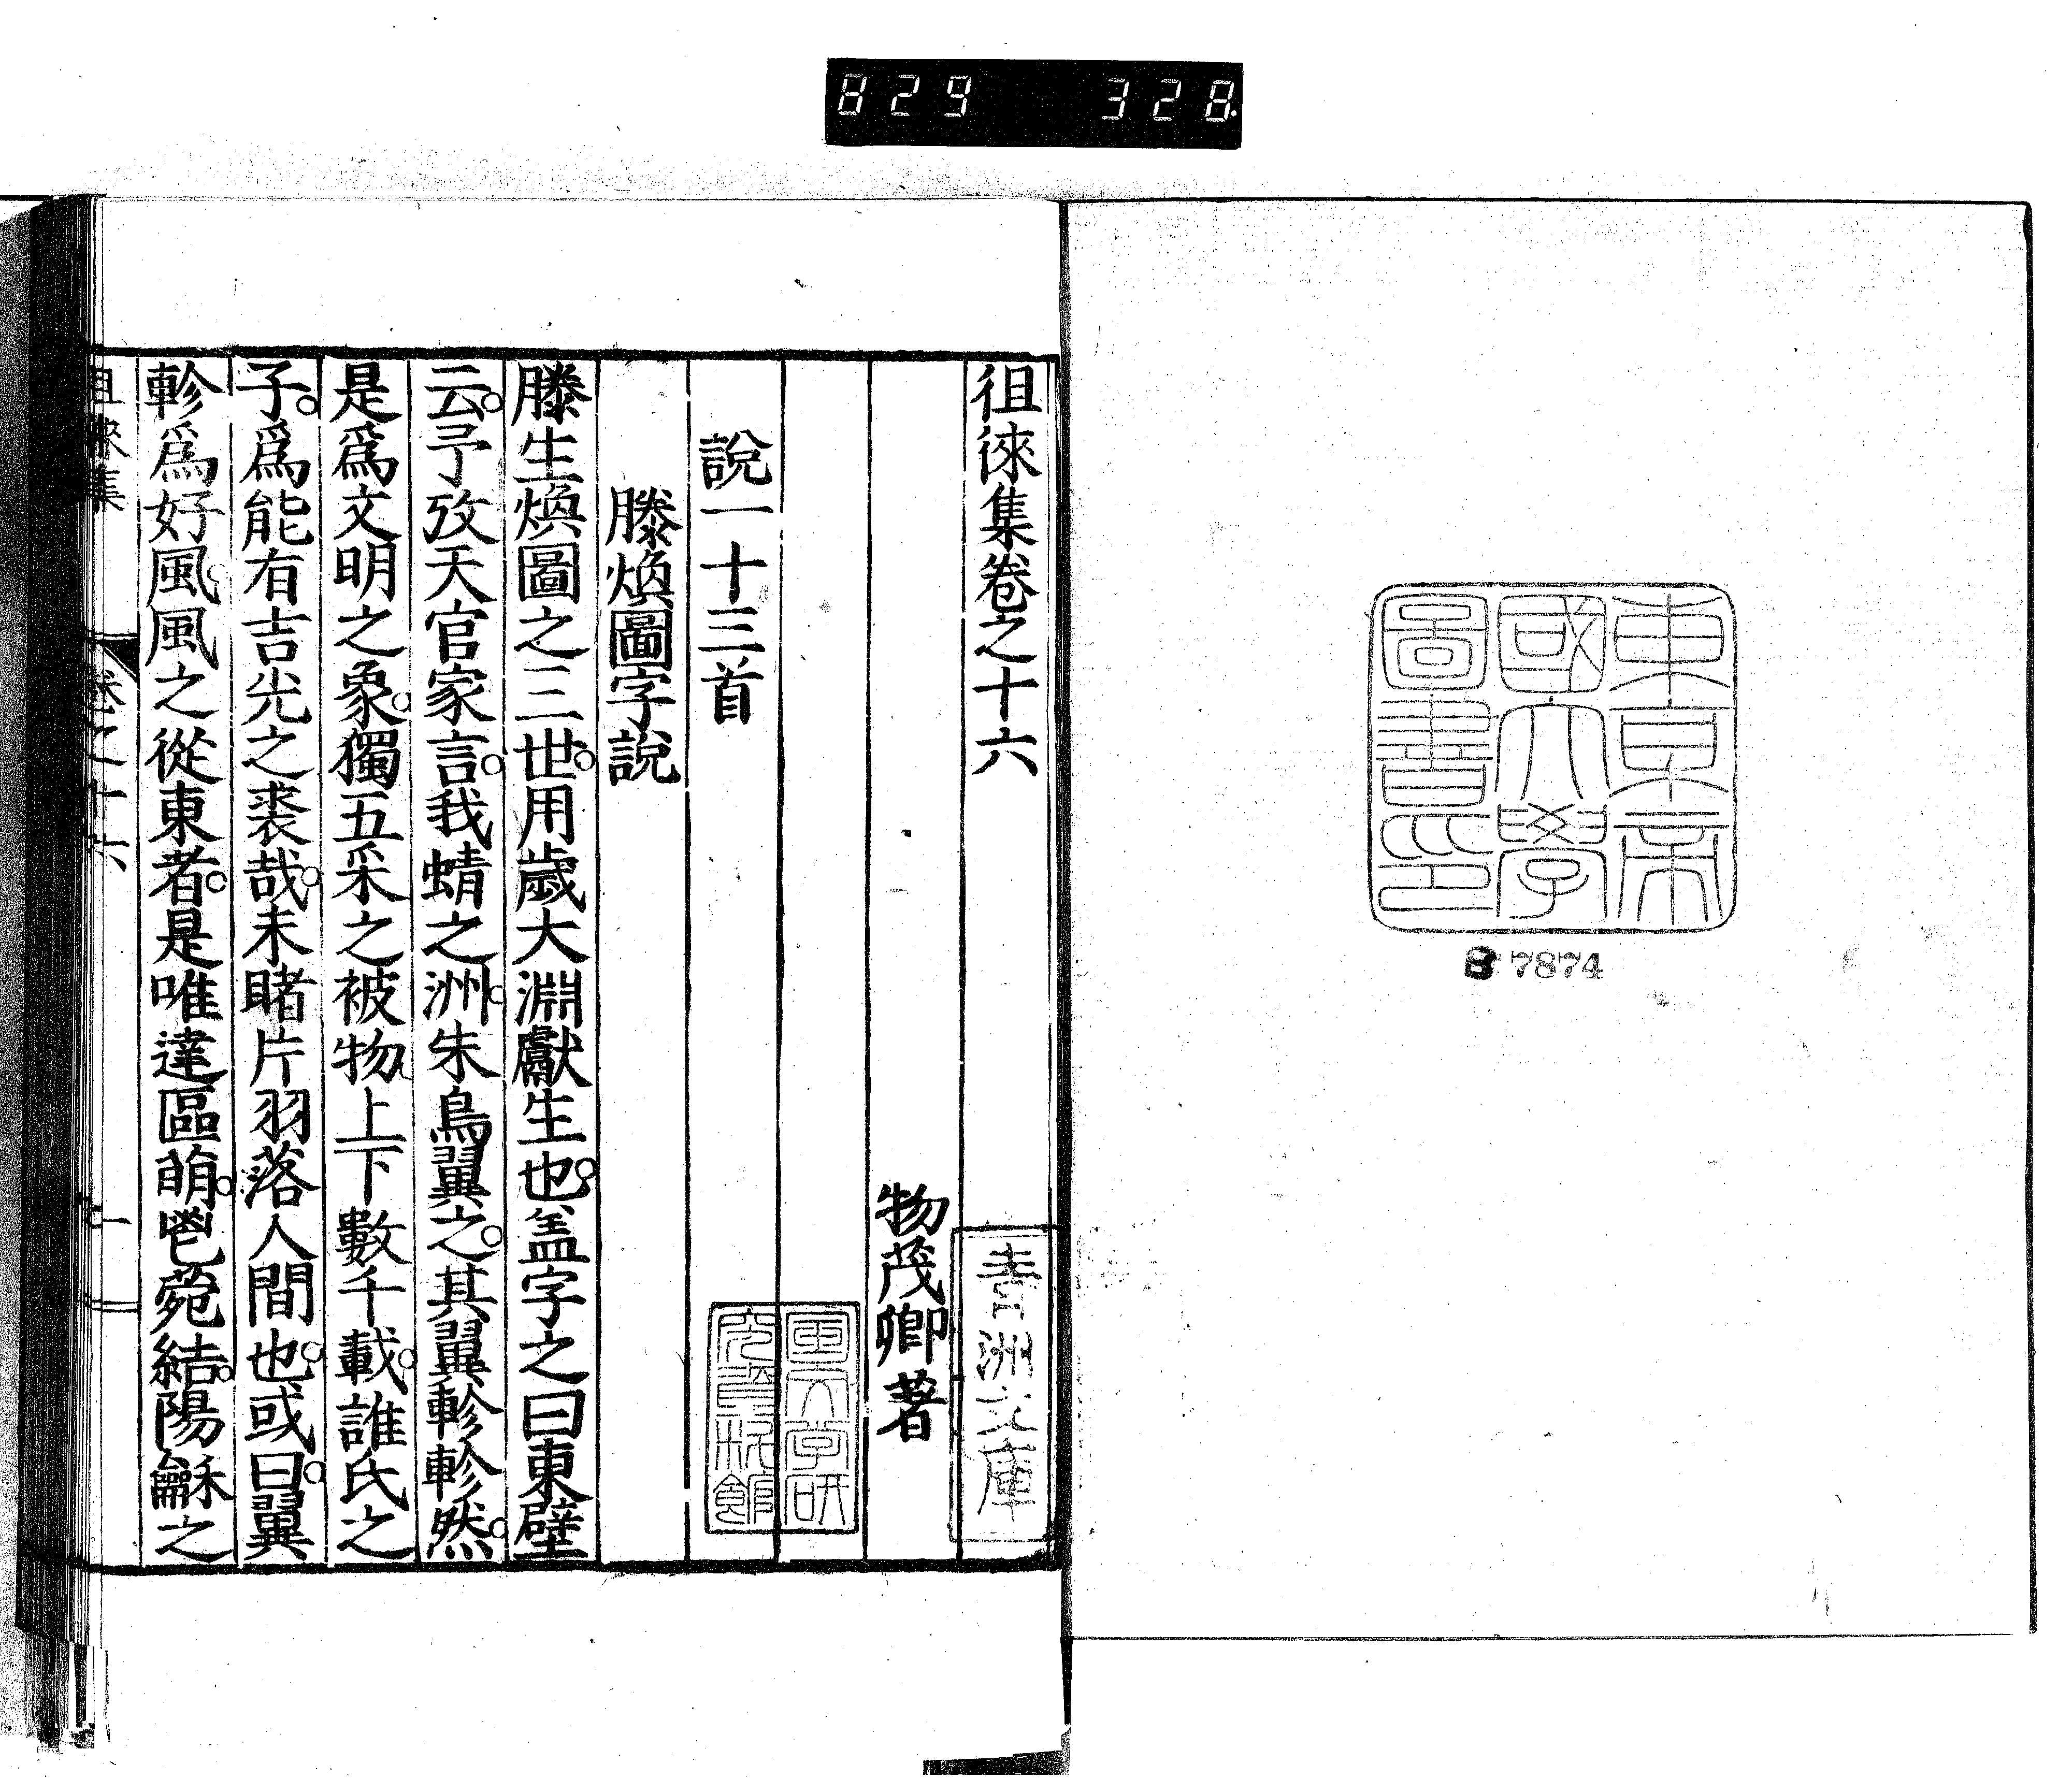 829 328
東京帝
國大學
圖書印
B 7874
徂徠集卷之十六
青洲文庫
物茂卿著
說一十三首
滕煥圖字說
滕生煥圖之三世。用歲大淵獻生也。盖字之曰東壁
云。予攷天官家言。我蜻之洲。朱鳥翼之。其翼軫軫然。
是爲文明之象。獨五采之被物。上下數千載。誰氏之
子。爲能有吉光之裘哉。未睹片羽落人間也。或曰。翼
軫爲好風。風之從東者。是唯達區萌。鬯菀結。陽龢之
徂徠集 卷之十六 一